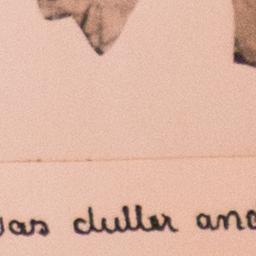 was duller and